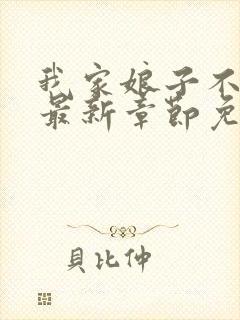 我家娘子不
最新章節免
貝比仲